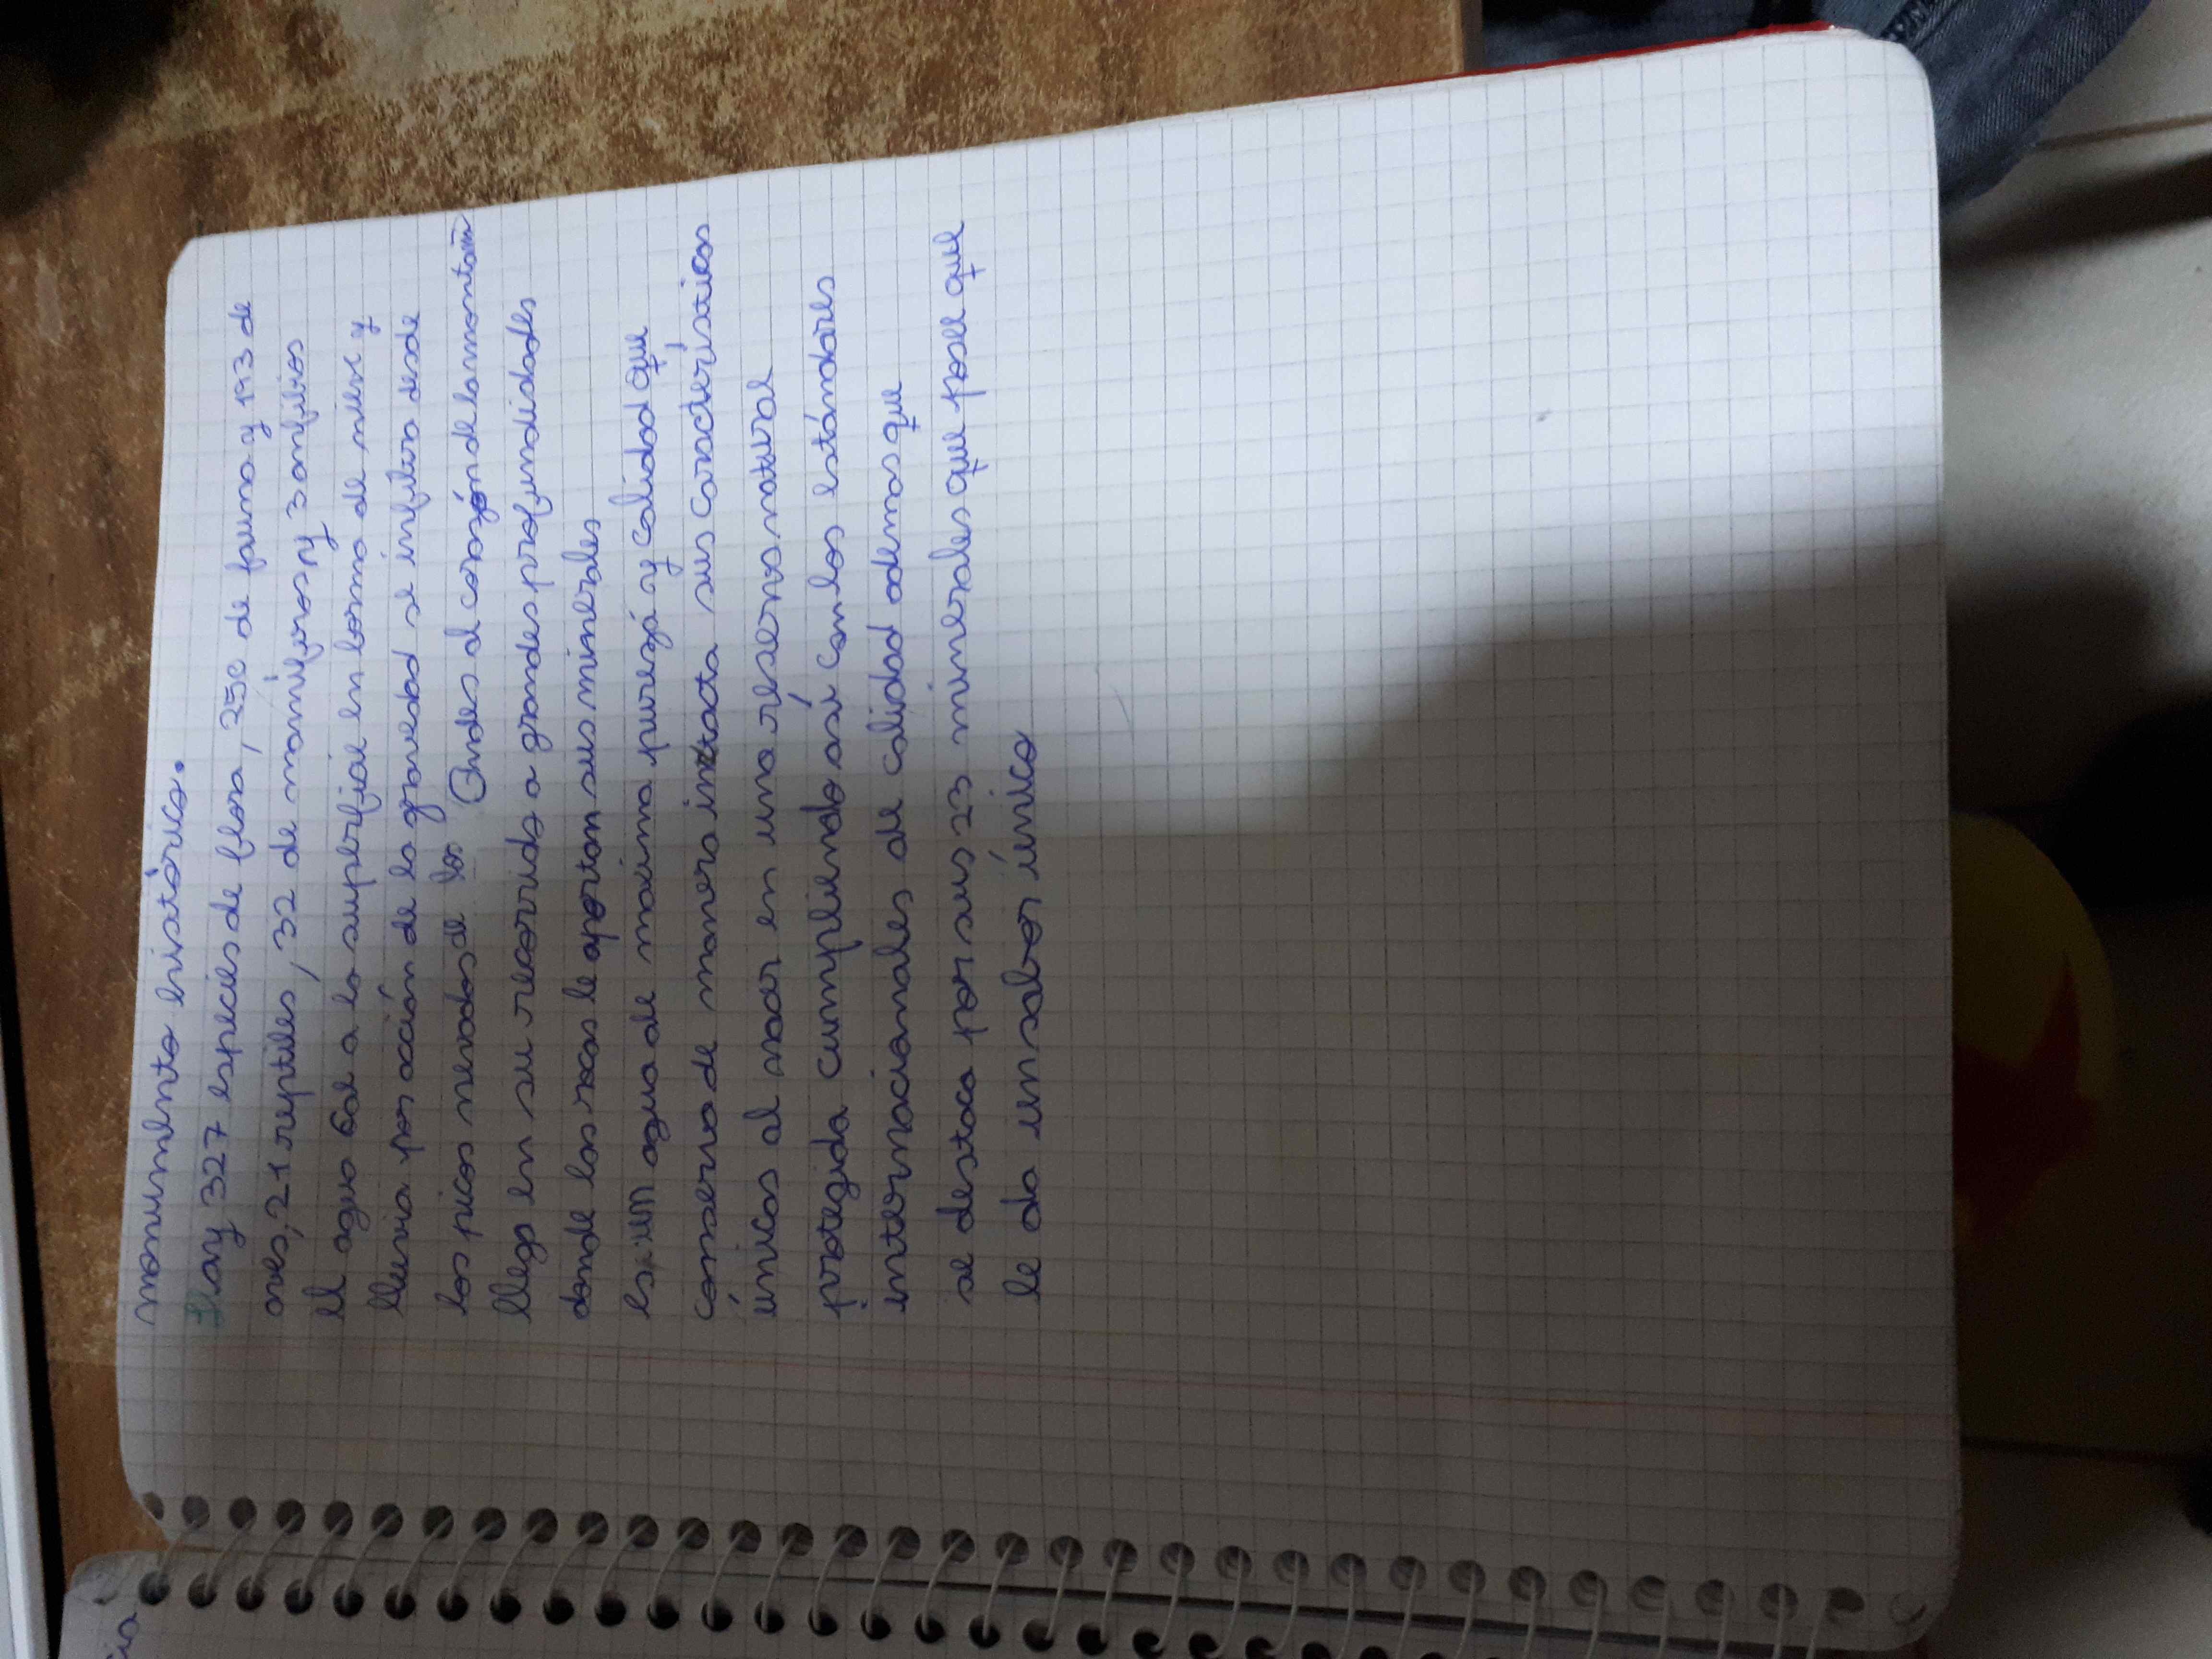 monumento histórico.
Hay 327 especies de flora, 250 de fauna y 193 de
aves, 21 reptiles, 32 de mamíferos y 3 anfibios
el agua cae a la superficie en forma de nieve y
lluvia por acción de la gravedad se infiltra desde
los picos nevados de los Andes al corazón de la montaña
llega en su recorrido a grandes profundidades
donde las rocas le aportan sus minerales
es un agua de maxima purezá y calidad que
conserva de manera intacta sus caracteristicas
únicas al nacer en una reserva natural
protegida cumpliendo así con los estándares
internacionales de calidad ademas que
se destaca por sus 23 minerales que posee que
le da un sabor único
cia